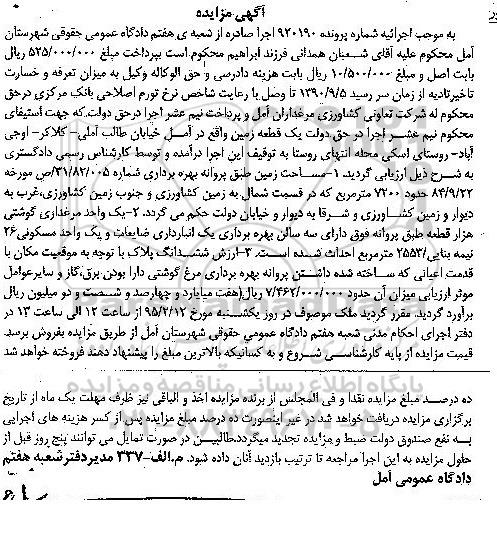 آگهی مزایده
به موجب اجرائیه شماره پرونده ۹۲۰۱۹۰ اجرا صادره از شعبه ی هفتم دادگاه عمومی حقوقی شهرستان
آمل محکوم علیه آقای شعبان همدانی فرزند ابراهیم محکوم است بپرداخت مبلغ ۵۲۵/۰۰۰/۰۰۰ ریال
بابت اصل و مبلغ ۱۰/۵۰۰/۰۰۰ ریال بابت هزینه دادرسی و حق الوکاله وکیل به میزان تعرفه و خسارت
تاخیرتادیه از زمان سر رسید ۱۳۹۰/۹/۵ تا وصل با رعایت شاخص نرخ تورم اصلاحی بانک مرکزی درحق
محکوم له شرکت تعاونی کشاورزی مرغداران آمل و پرداخت نیم عشر اجرا درحق دولت.که جهت استیفای
محکوم نیم عشر اجرا در حق دولت یک قطعه زمین واقع در آمل خیابان طالب آملی- کلاکر- اوجی
آباد- روستای اسکی محله انتهای روستا به توقیف این اجرا درآمده و توسط کارشناس رسمی دادگستری
به شرح ذیل ارزیابی گردید. ۱-مساحت زمین طبق پروانه بهره برداری شماره ۳۱/۸۲/۰۰۵/ص مورخه
۸۴/۹/۲۲ حدود ۷۲۰۰ مترمربع که در قسمت شمال به زمین کشاورزی و جنوب زمین کشاورزی،غرب به
دیوار و زمین کشاورزی و شرقا به دیوار و خیابان دولت حکم می گردد. ۲-یک واحد مرغداری گوشتی
هزار قطعه طبق پروانه فوق دارای سه سالن بهره برداری یک انبارداری ضایعات و یک واحد مسکونی۲۶
نیمه بنایی/۲۵۵۳ مترمربع احداث شده است. ۳-ارزش ششدانگ پلاک با توجه به موقعیت مکان با
قدمت اعیانی که ساخته شده داشتن پروانه بهره برداری مرغ گوشتی دارا بودن برق،گاز و سایرعوامل
موثر ارزیابی میزان آن حدود ۷/۴۶۲/۰۰۰/۰۰۰ ریال(هفت میلیارد و چهارصد و شصت و دو میلیون ریال
برآورد گردید. مقرر گردید ملک موصوف در روز یکشنبه مورخ ۹۵/۲/۱۲ از ساعت ۱۲ الی ساعت ۱۳ در
دفتر اجرای احکام مدنی شعبه هفتم دادگاه عمومی حقوقی شهرستان آمل از طریق مزایده بفروش برسد.
قیمت مزایده از پایه کارشناسی شروع و به کسانیکه بالاترین مبلغ را پیشنهاد دهند فروخته خواهد شد
ده درصد مبلغ مزایده نقدا و فی المجلس از برنده مزایده اخذ و الباقی نیز ظرف مهلت یک ماه از تاریخ
برگزاری مزایده دریافت خواهد شد در غیر اینصورت ده درصد مبلغ مزایده پس از کسر هزینه های اجرایی
به نفع صندوق دولت ضبط و مزایده تجدید میگردد.طالبین در صورت تمایل می توانند پنج روز قبل از
حلول مزایده به این اجرا مراجعه تا ترتیب بازدید آنان داده شود. م.الف-۳۳۷ مدیر دفتر شعبه هفتم
دادگاه عمومی آمل